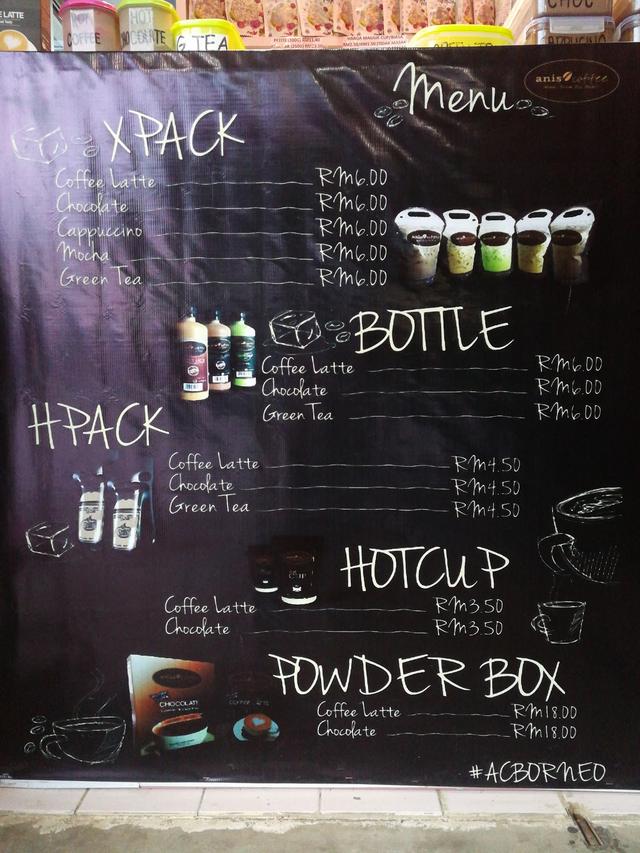 HOT
COFFEE
HOT
G TEA
Menu
anis coffee
XPACK
Coffee Latte RM6.00
Chocolate RM6.00
Cappuccino RM6.00
Mocha RM6.00
Green Tea RM6.00
BOTTLE
Coffee Latte RM6.00
Chocolate RM6.00
Green Tea RM6.00
HPACK
Coffee Latte RM4.50
Chocolate RM4.50
Green Tea RM4.50
HOTCUP
Coffee Latte RM3.50
Chocolate RM3.50
POWDER BOX
Coffee Latte RM18.00
Chocolate RM18.00
#ACBORNEO